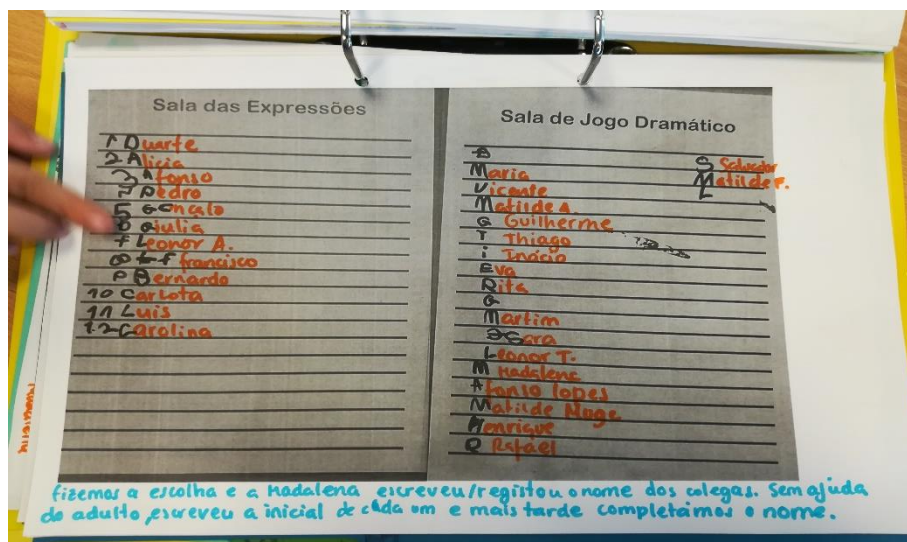 Sala das Expressões
1 Duarte
2 Alicia
3 Afonso
Pedro
5 Gonçalo
Giulia
7 Leonor A.
8 francisco
Bernardo
10 Carlota
11 Luis
12 Carolina
Sala de Jogo Dramático
B
Maria
Vicente
Matilde A.
G Guilherme
T Thiago
i Inácio
Eva
Rita
G
Martim
Sara
Leonor T.
M Madalena
Afonso lopes
Matilde Muge
Henrique
R Rafael
S Salvador
Matilde P.
L
fizemos a escolha e a Madalena escreveu/registou o nome dos colegas. Sem ajuda
do adulto, escreveu a inicial de cada um e mais tarde completámos o nome.